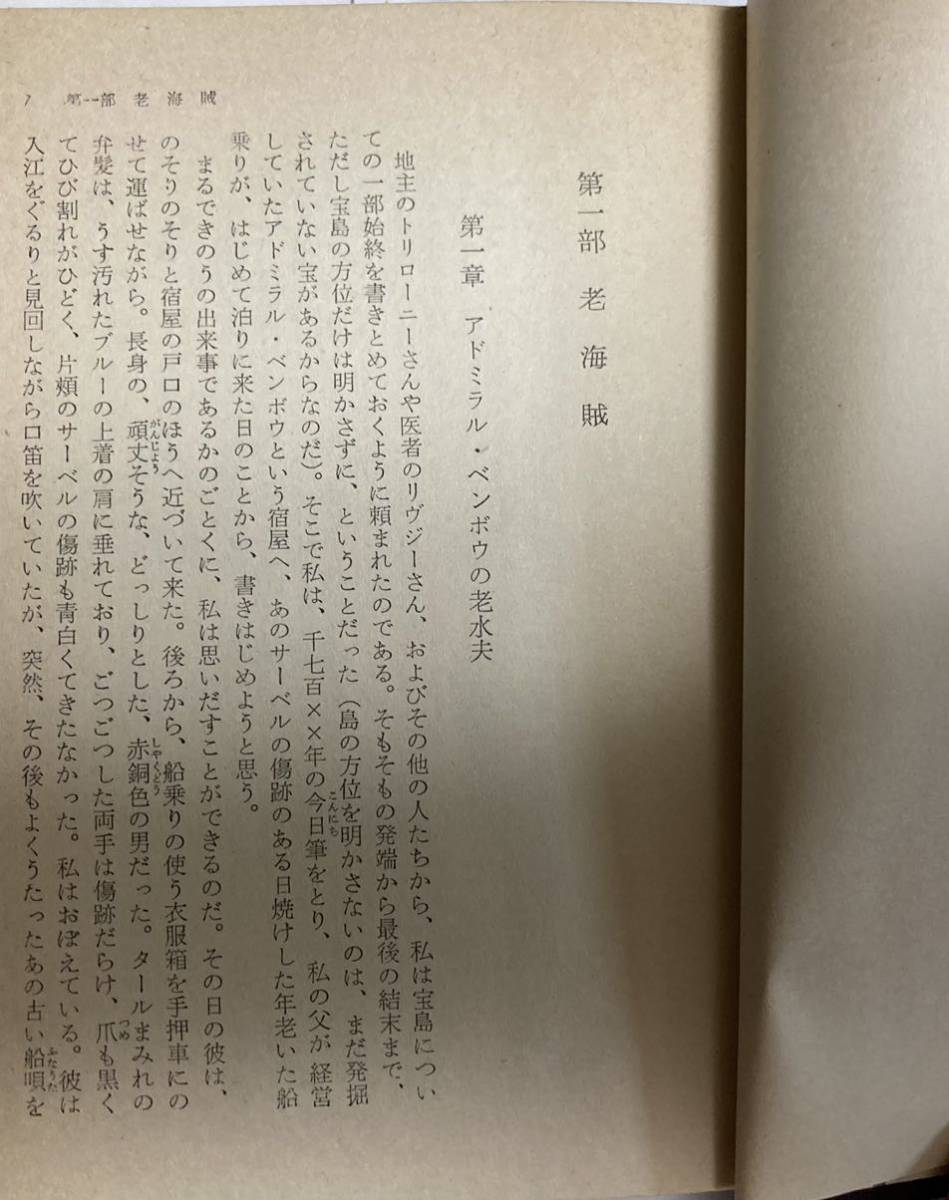 第一部 老海賊
第一章 アドミラル・ベンボウの老水夫
地主のトリローニーさんや医者のリヴジーさん、およびその他の人たちから、私は宝島につい
ての一部始終を書きとめておくように頼まれたのである。そもそもの発端から最後の結末まで、
ただし宝島の方位だけは明かさずに、ということだった（島の方位を明かさないのは、まだ発掘
されていない宝があるからなのだ）。そこで私は、千七百××年の今日筆をとり、私の父が経営
していたアドミラル・ベンボウという宿屋へ、あのサーベルの傷跡のある日焼けした年老いた船
乗りが、はじめて泊りに来た日のことから、書きはじめようと思う。
まるできのうの出来事であるかのごとくに、私は思いだすことができるのだ。その日の彼は、
のそりのそりと宿屋の戸口のほうへ近づいて来た。後ろから、船乗りの使う衣服箱を手押車にの
せて運ばせながら。長身の、頑丈そうな、どっしりとした、赤銅色の男だった。タールまみれの
弁髪は、うす汚れたブルーの上着の肩に垂れており、ごつごつした両手は傷跡だらけ、爪も黒く
てひび割れがひどく、片頬のサーベルの傷跡も青白くてきたなかった。私はおぼえている。彼は
入江をぐるりと見回しながら口笛を吹いていたが、突然、その後もよくうたったあの古い船唄を
7 第一部 老海賊